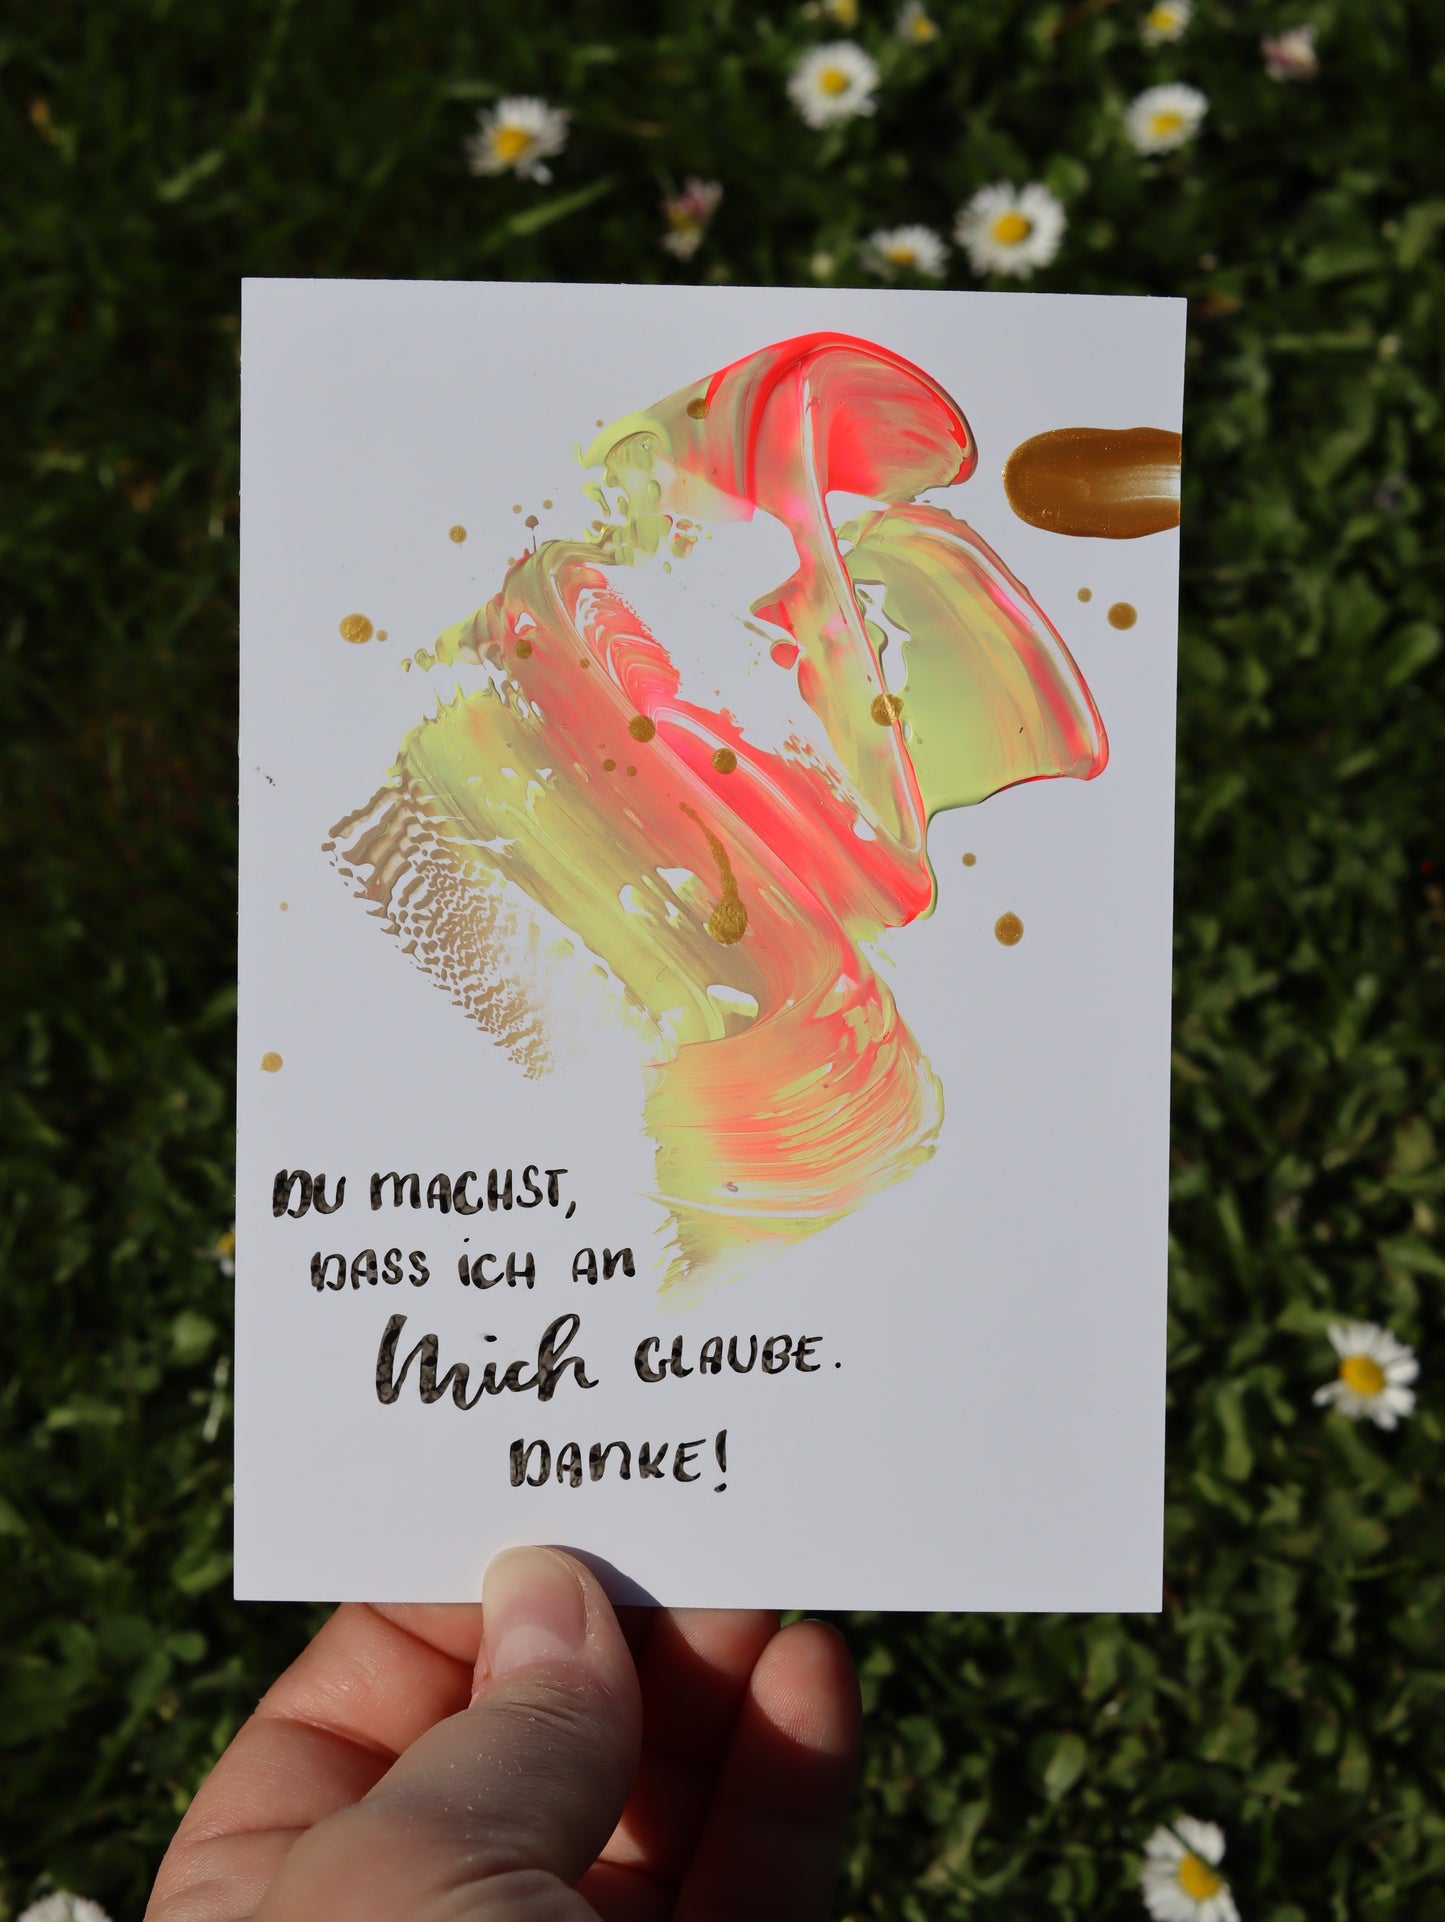 DU MACHST,
DASS ICH AN
Mich GLAUBE.
DANKE!